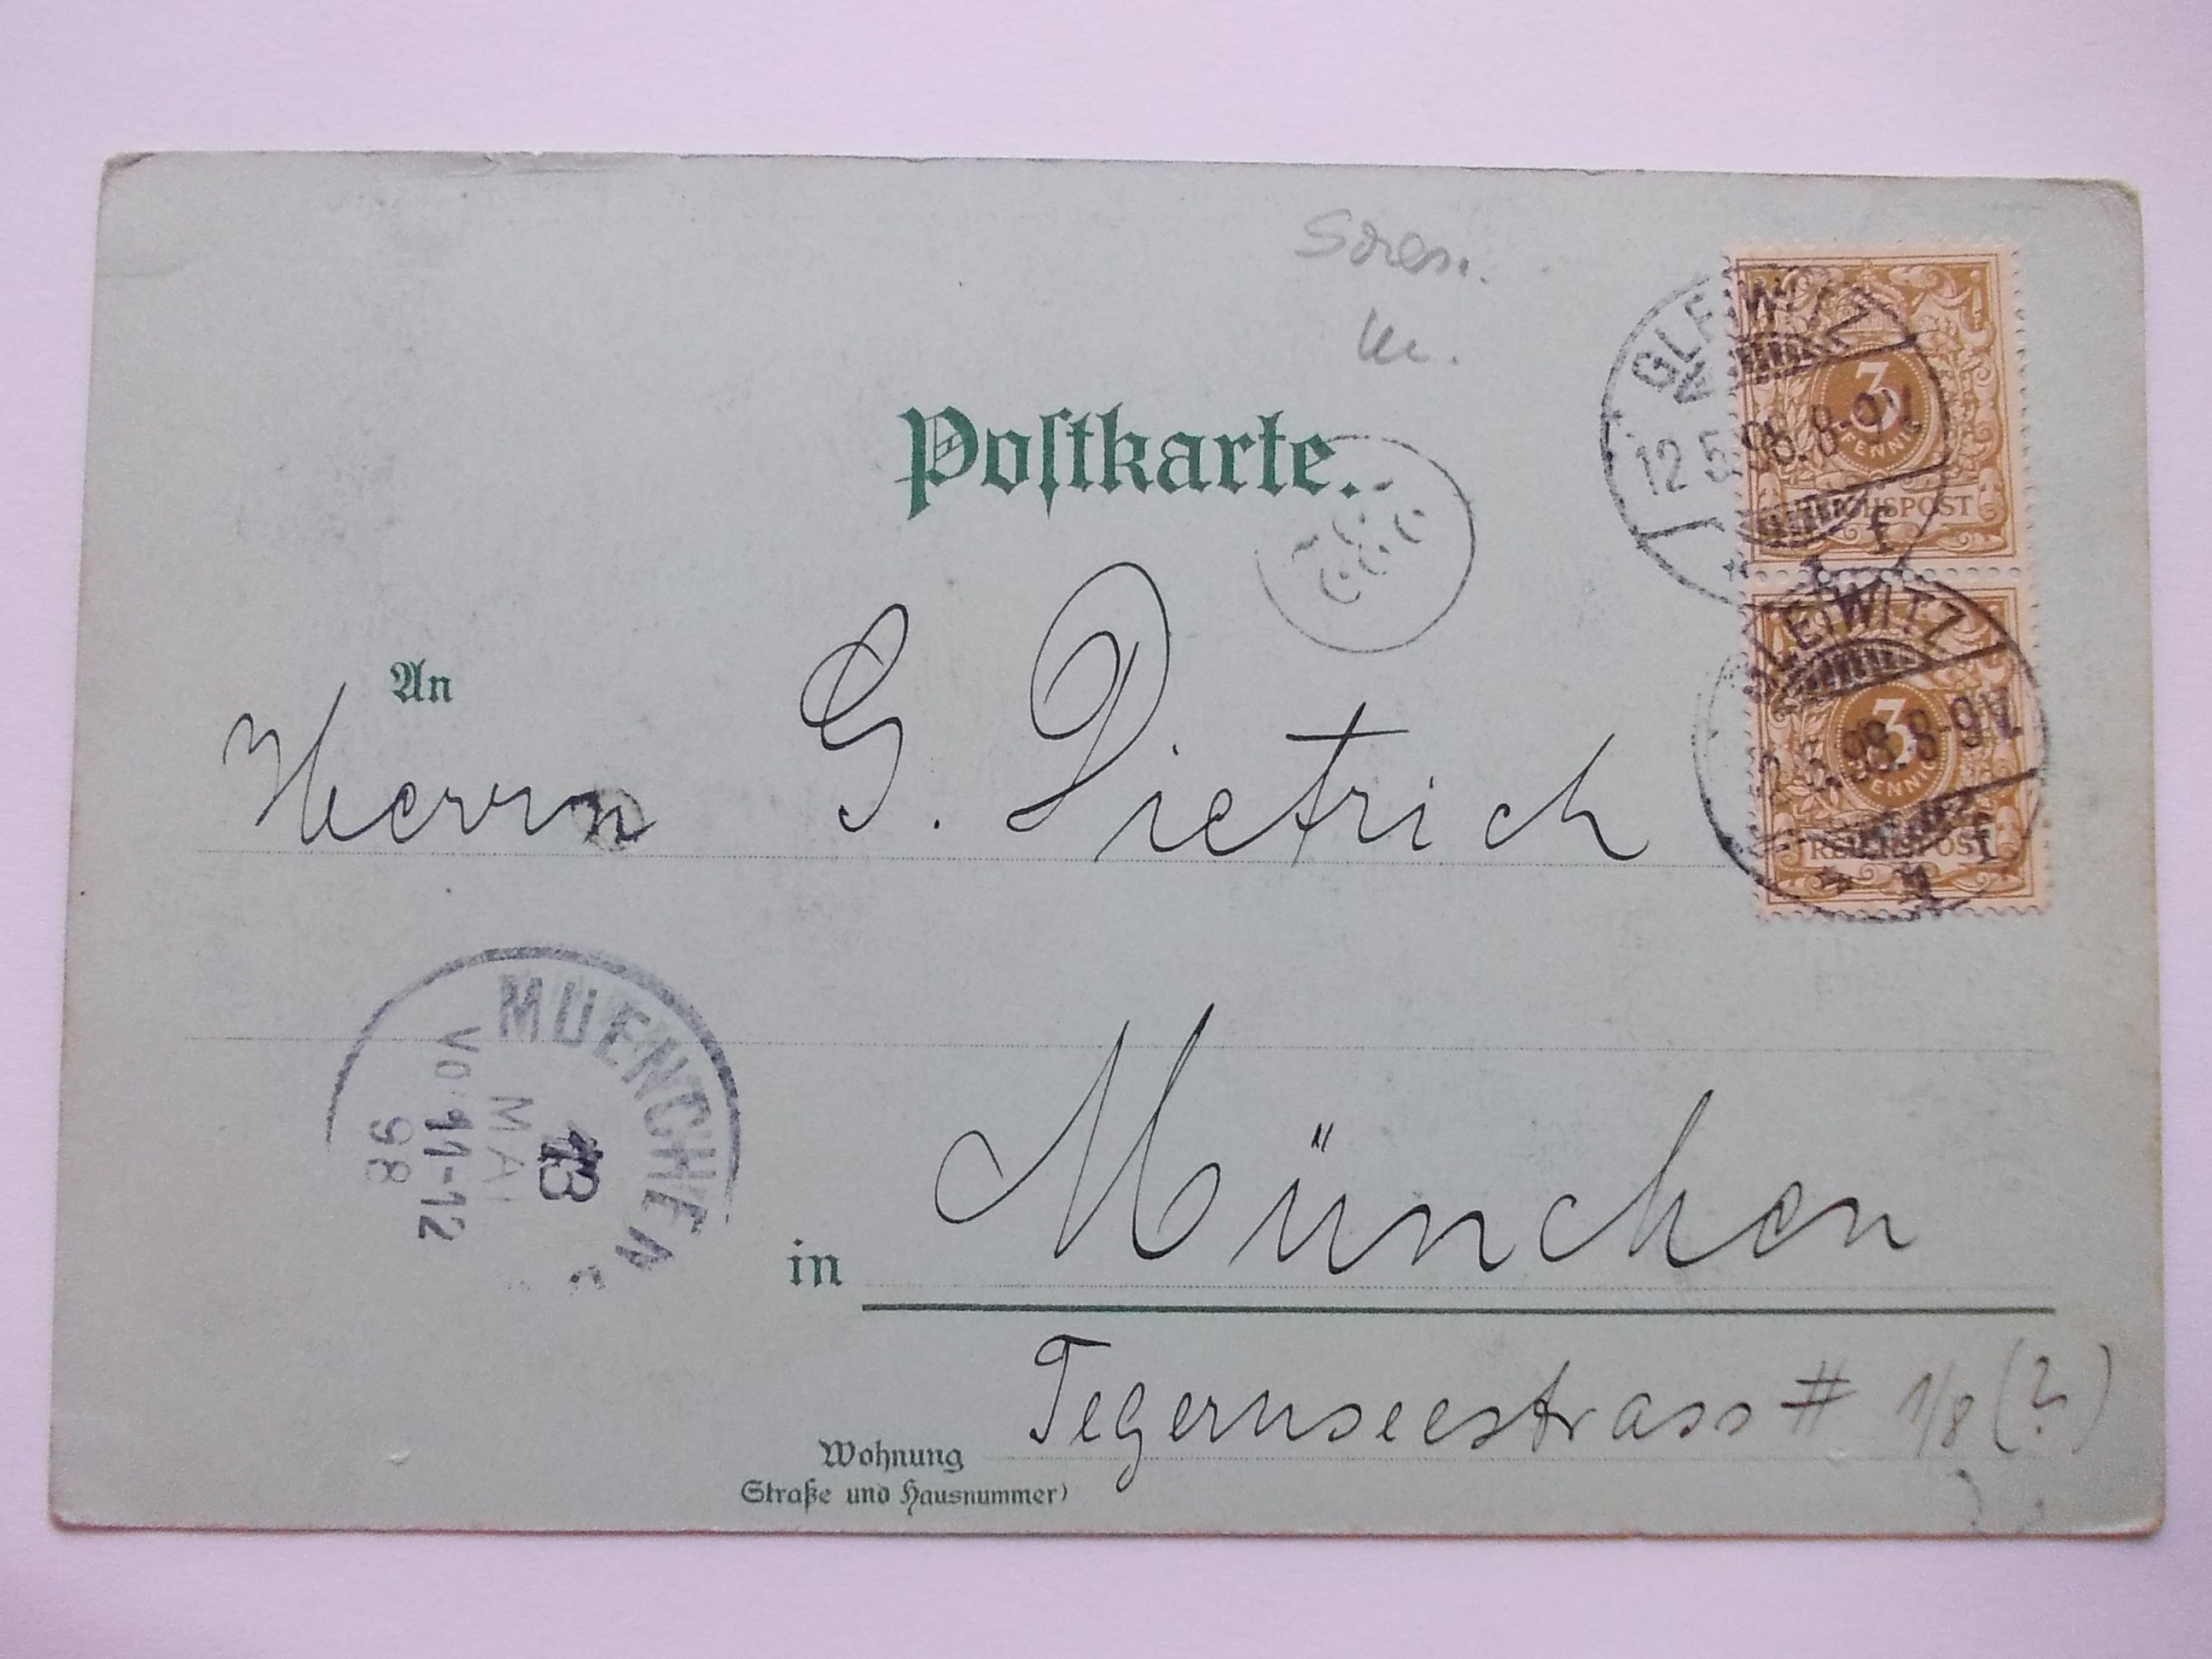 Postkarte.
GLEIWITZ
12 5.98. 8-9V.
* f
3
PFENNIG
REICHSPOST
GLEIWITZ
12.5.98. 8-9V.
* f
3
PFENNIG
REICHSPOST
An
Herrn G. Dietrich
MUENCHEN
13
MAI
Vor 11-12
98
in München
Tegernseestrass # 1/8 (?)
Wohnung
Straße und Hausnummer)